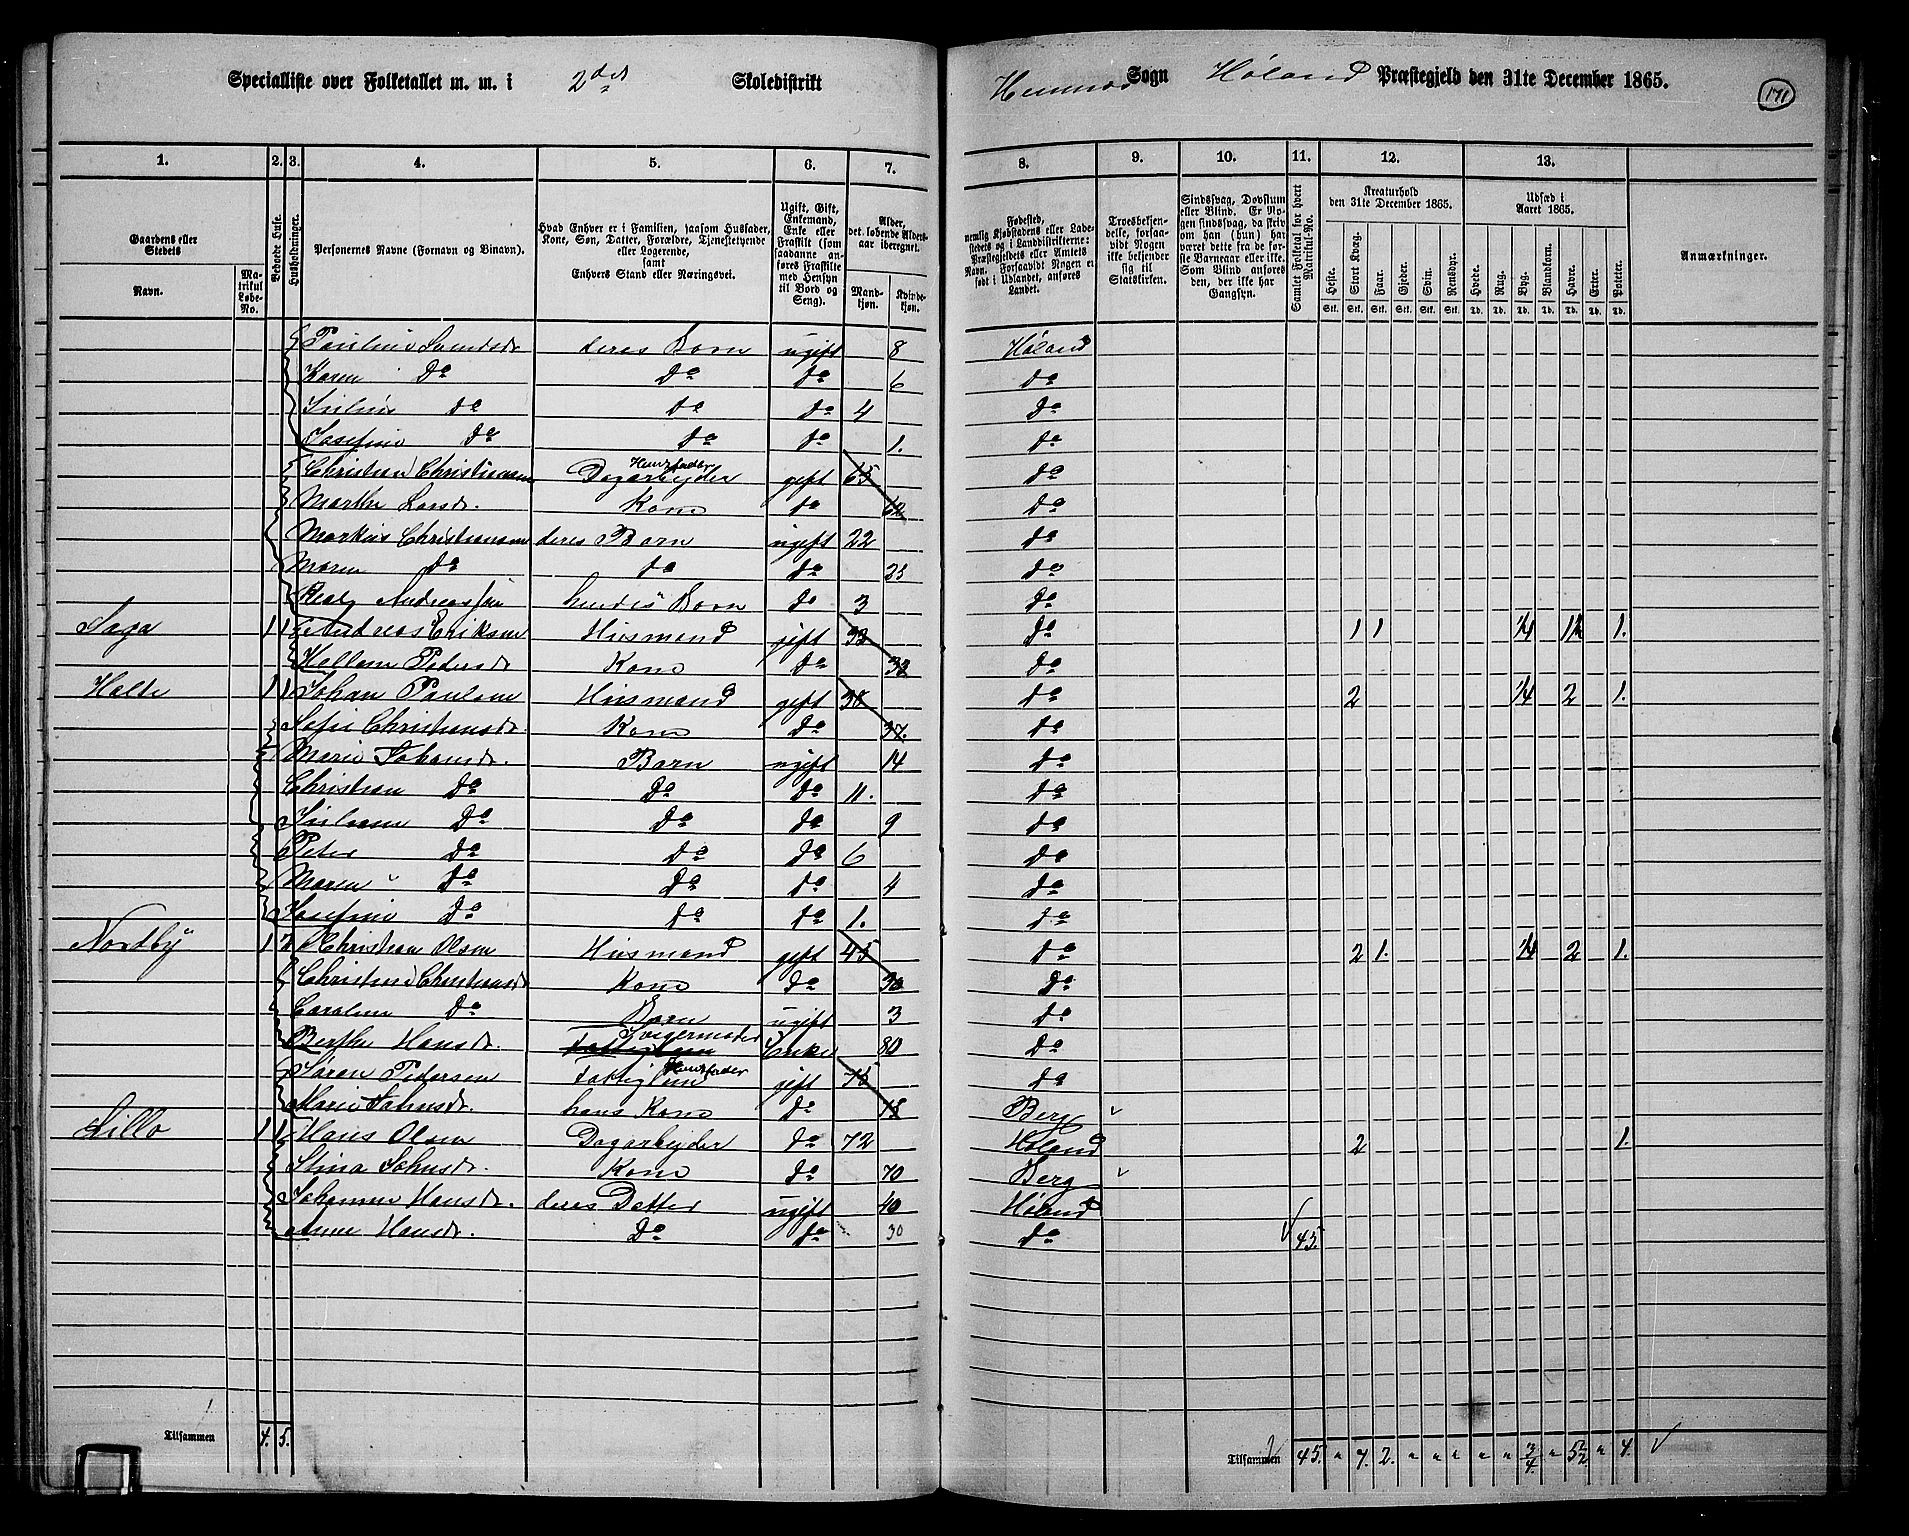 Specialliste over Folketallet m. m. i 2det Skoledistrikt
Sogn Høland Præstegjeld den 31te December 1865.
171
1. 2. 3. 4. 5. 6. 7. 8. 9. 10. 11. 12. 13.
Gaardens eller Stedets
Navn.
Matrikul Løbe-No.
Beboede Huse.
Husholdninger.
Personernes Navne (Fornavn og Binavn).
Hvad Enhver er i Familien, saasom Husfader, Kone, Søn, Datter, Forældre, Tjenestetyende eller Logerende, samt Enhvers Stand eller Næringsvei.
Ugift, Gift, Enkemand, Enke eller Fraskilt (som saadanne anføres Fraskilte med Hensyn til Bord og Seng).
Alder, det løbende Aldersaar iberegnet.
Mandkjøn. Kvindekjøn.
Fødested, nemlig Kjøbstadens eller Ladestedets og i Landdistrikterne: Præstegjeldets eller Amtets Navn. Forsaavidt Nogen er født i Udlandet, anføres Landet.
Troesbekjendelse, forsaavidt Nogen ikke bekjender sig til Statskirken.
Sindssvag, Døvstum eller Blind. Er Nogen sindssvag, da skriv om han (hun) har været dette fra de første Barneaar eller ikke. Som Blind anføres den, der ikke har Gangsyn.
Samlet Folketal for hvert Matrikul-No.
Kreaturhold den 31te December 1865.
Heste. Stort Kvæg. Faar. Gjeder. Svin. Rensdyr.
Udsæd i Aaret 1865.
Hvede. Rug. Byg. Blandkorn. Havre. Erter. Poteter.
Anmærkninger.
Stk. Stk. Stk. Stk. Stk. Stk. Td. Td. Td. Td. Td. Td. Td.
Pauline Svendsd. deres Barn ugift 8 Høland
Karen Do Do Do 6 do
Do do do 4 Do
Josefine Do Do do 1. Do
Christian Christiansen Huusfader Dagarbejder gift 65 Do
Marthe Larsd. Kone do 62 Do
Markus Christiansen deres Barn ugift 22 Do
Maren do do do 23 Do
Andreassen hendes Barn do 3 Do
Saga 1 1 Andreas Eriksen Husmand gift 33 Do 1 1 1/4 1 1/2 1.
Pedersd. Kone Do 32 Do
Holte 1 1 Johan Paulsen Husmand gift 38 do 2 1/4 2 1.
Christiansd. Kone Do 37. do
Marie Johansd. Barn ugift 14 do
Christian Do Do Do 11. do
Do Do do 9 do
Peter do Do do 6 Do
Maren Do Do do 4 do
Josefine Do do do 1. do
Nordby 1 2 Christian Olsen Husmand gift 45 do 2 1. 1/4 2 1.
Christine Christiansd. Kone do Do
Caroline Do Barn ugift 3 Do
Berthe Hansd. Svigermoder Enke 80 Do
Søren Pedersen Fattiglem Huusfader gift 75 Do
Marie Johnsd. hans Kone Do 78 Berg
Lillo 1 1 Hans Olsen Dagarbejder Do 72 Høland 2 1.
Stina Johnsd. Kone do 70 Berg
Johanne Hansd. deres Datter ugift 40 Høland
Anne Hansd. Do do 30 do 45.
Tilsammen 4. 5.
Tilsammen 45. " 7. 2. " " " " " 3/4 " 5 1/2 " 4.